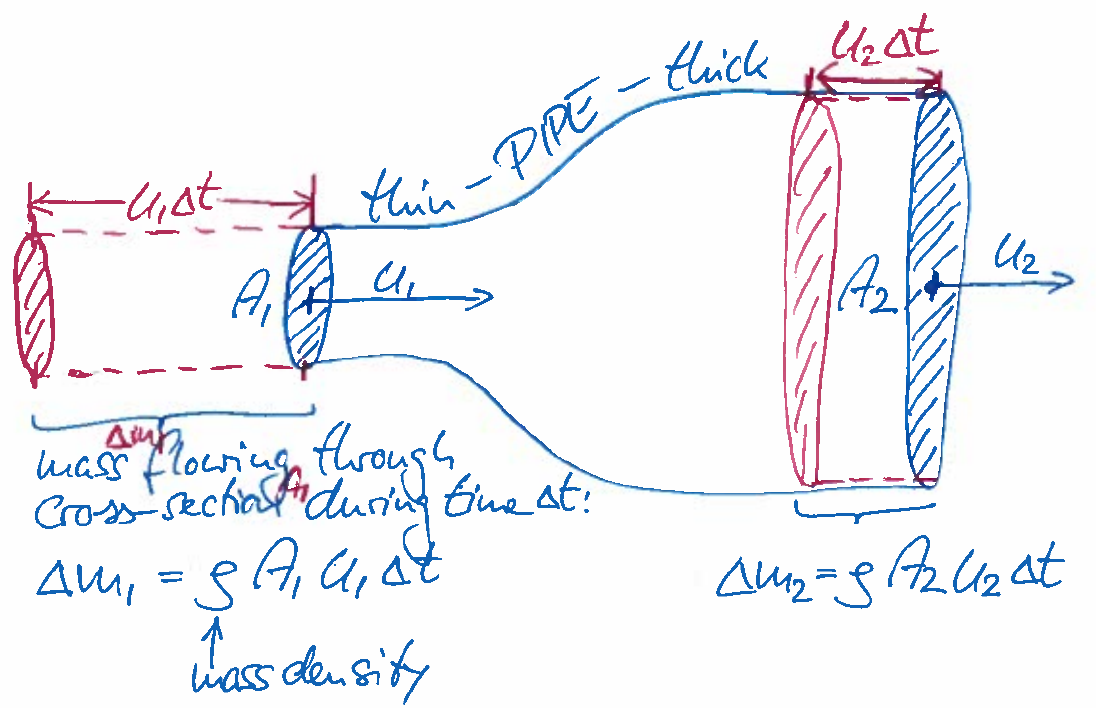 u₂Δt
thin – PIPE – thick
u₁Δt
A₁
u₁
A₂
u₂
Δm₁
mass flowing through
cross-section A₁ during time Δt:
Δm₁ = ϱ A₁ u₁ Δt
mass density
Δm₂ = ϱ A₂ u₂ Δt